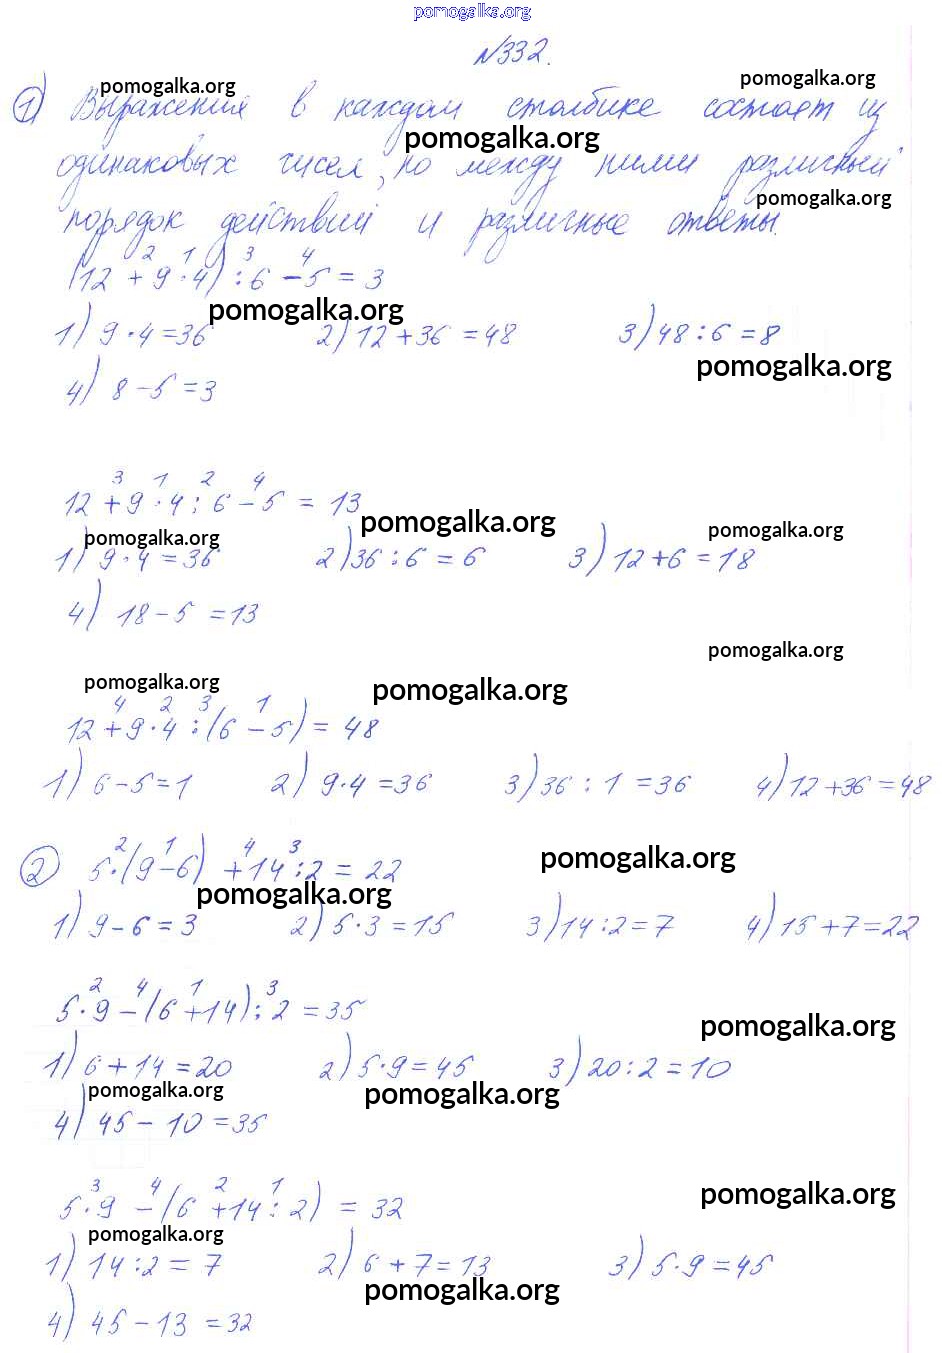 pomogalka.org
№332.
pomogalka.org pomogalka.org
1) Выражения в каждом столбике состоят из
pomogalka.org
одинаковых чисел, но между ними различный
pomogalka.org
порядок действий и различные ответы.
2 1 3 4
(12 + 9 · 4) : 6 - 5 = 3
pomogalka.org
1) 9 · 4 = 36 2) 12 + 36 = 48 3) 48 : 6 = 8
pomogalka.org
4) 8 - 5 = 3
3 1 2 4
12 + 9 · 4 : 6 - 5 = 13
pomogalka.org pomogalka.org pomogalka.org
1) 9 · 4 = 36 2) 36 : 6 = 6 3) 12 + 6 = 18
4) 18 - 5 = 13
pomogalka.org
pomogalka.org pomogalka.org
4 2 3 1
12 + 9 · 4 : (6 - 5) = 48
1) 6 - 5 = 1 2) 9 · 4 = 36 3) 36 : 1 = 36 4) 12 + 36 = 48
2 1 4 3
2) 5 · (9 - 6) + 14 : 2 = 22
pomogalka.org
pomogalka.org
1) 9 - 6 = 3 2) 5 · 3 = 15 3) 14 : 2 = 7 4) 15 + 7 = 22
2 4 1 3
5 · 9 - (6 + 14) : 2 = 35
pomogalka.org
1) 6 + 14 = 20 2) 5 · 9 = 45 3) 20 : 2 = 10
pomogalka.org pomogalka.org
4) 45 - 10 = 35
3 4 2 1
pomogalka.org
5 · 9 - (6 + 14 : 2) = 32
pomogalka.org
1) 14 : 2 = 7 2) 6 + 7 = 13 3) 5 · 9 = 45
pomogalka.org
4) 45 - 13 = 32